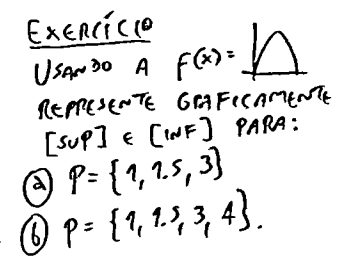 EXERCÍCIO
USANDO A F(x)=
REPRESENTE GRAFICAMENTE
[SUP] E [INF] PARA:
(a) P = {1, 1.5, 3}
(b) P = {1, 1.5, 3, 4}.